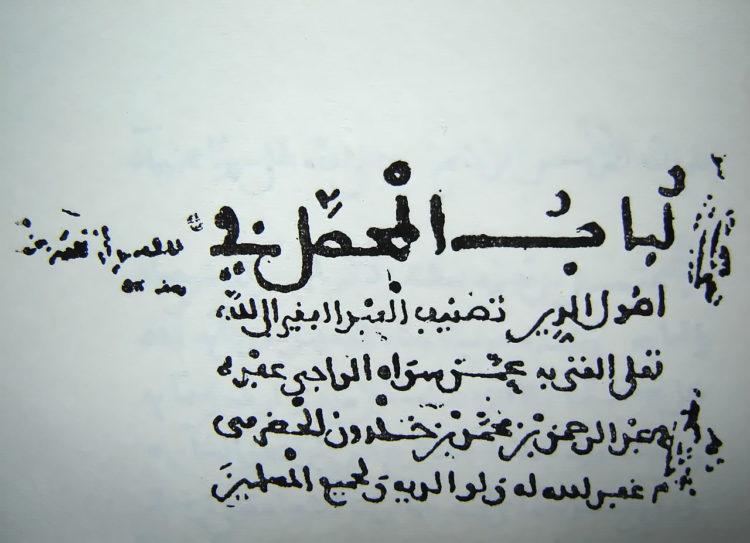 لُبابُ المحصّل في
أصول الدين تصنيف العبد الفقير إلى الله
تعلى الغني به عمّن سواه الراجي عفوه
عبد الرحمن بن محمد بن خلدون الحضرمي
غفر الله له ولوالديه ولجميع المسلمين